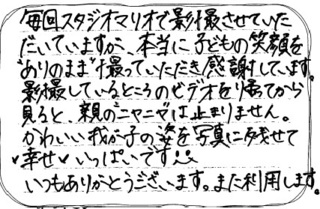 毎回スタジオマリオで影撮させていた
だいていますが、本当に子どもの笑顔を
ありのまま撮っていただき感謝しています。
影撮しているところのビデオをり帰ってから
見ると、親のニヤニマは止まりません。
かわいい我が子の姿を写真に残せて
♥幸せ♥いっぱいです
いつもありがとうございます。また利用します。